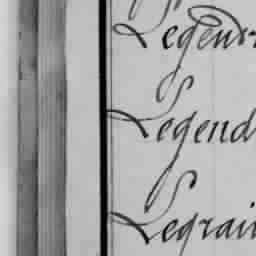 Legend
Legend
Legrai